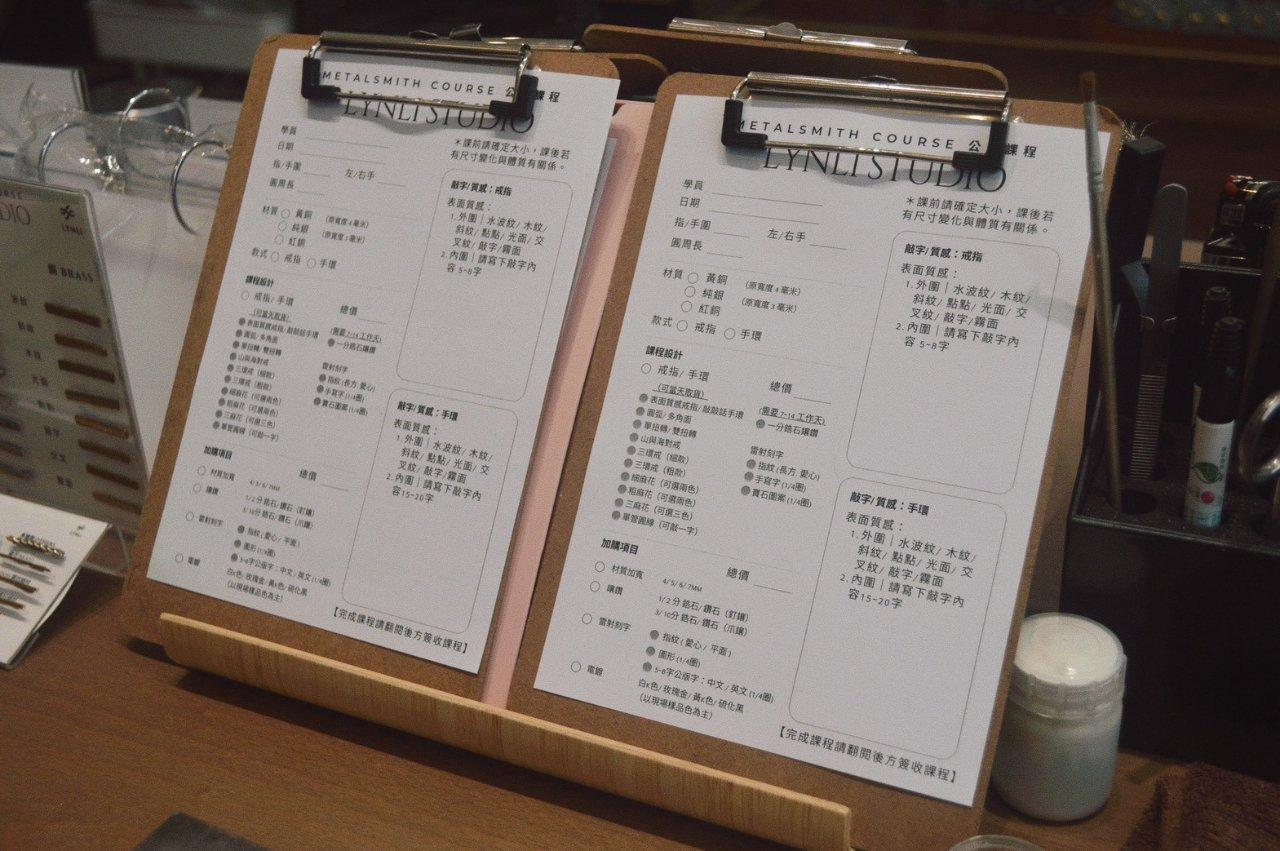 METALSMITH COURSE 公 課程
LYNLI STUDIO
學員
日期
指/手圍 左/右手
圓周長
＊課前請確定大小，課後若
有尺寸變化與體質有關係。
材質 黃銅 (原寬度 4 毫米)
純銀 (原寬度 3 毫米)
紅銅
款式 戒指 手環
課程設計
戒指/ 手環 總價
(可當天取貨) (需要 7-14 工作天)
表面質感戒指/ 敲敲話手環
一分鋯石鑲鑽
圓弧/ 多角面
單扭轉/ 雙扭轉
山與海對戒
三環戒（細款）
三環戒（粗款）
細麻花（可選兩色）
粗麻花（可選兩色）
三麻花（可選三色）
單管圓線（可敲一字）
雷射刻字
指紋 (長方 愛心)
手寫字 (1/4圈)
寶石圖案 (1/4圈)
加購項目
總價
材質加寬 4/ 5/ 6/ 7MM
鑲鑽 1/ 2分 鋯石/ 鑽石（釘鑲）
3/ 10分 鋯石/ 鑽石（爪鑲）
雷射刻字 指紋 ( 愛心 / 平面 )
圖形 (1/4圈)
5-8字公版字：中文 / 英文 (1/4圈)
電鍍 白K色/ 玫瑰金/ 黃K色/ 硫化黑
（以現場樣品色為主）
敲字/ 質感：戒指
表面質感：
1. 外圍｜水波紋/ 木紋/
斜紋/ 點點/ 光面/ 交
叉紋/ 敲字/霧面
2. 內圍｜請寫下敲字內
容 5-8字
敲字/ 質感：手環
表面質感：
1. 外圍｜水波紋/ 木紋/
斜紋/ 點點/ 光面/ 交
叉紋/ 敲字/霧面
2. 內圍｜請寫下敲字內
容15-20字
【完成課程請翻閱後方簽收課程】
METALSMITH COURSE 公 課程
LYNLI STUDIO
學員
日期
指/手圍 左/右手
圓周長
＊課前請確定大小，課後若
有尺寸變化與體質有關係。
材質 黃銅 (原寬度 4 毫米)
純銀 (原寬度 3 毫米)
紅銅
款式 戒指 手環
課程設計
戒指/ 手環 總價
(可當天取貨) (需要 7-14 工作天)
表面質感戒指/ 敲敲話手環
一分鋯石鑲鑽
圓弧/ 多角面
單扭轉/ 雙扭轉
山與海對戒
三環戒（細款）
三環戒（粗款）
細麻花（可選兩色）
粗麻花（可選兩色）
三麻花（可選三色）
單管圓線（可敲一字）
雷射刻字
指紋 (長方 愛心)
手寫字 (1/4圈)
寶石圖案 (1/4圈)
加購項目
總價
材質加寬 4/ 5/ 6/ 7MM
鑲鑽 1/ 2分 鋯石/ 鑽石（釘鑲）
3/ 10分 鋯石/ 鑽石（爪鑲）
雷射刻字 指紋 ( 愛心 / 平面 )
圖形 (1/4圈)
5-8字公版字：中文 / 英文 (1/4圈)
電鍍 白K色/ 玫瑰金/ 黃K色/ 硫化黑
（以現場樣品色為主）
敲字/ 質感：戒指
表面質感：
1. 外圍｜水波紋/ 木紋/
斜紋/ 點點/ 光面/ 交
叉紋/ 敲字/霧面
2. 內圍｜請寫下敲字內
容 5-8字
敲字/ 質感：手環
表面質感：
1. 外圍｜水波紋/ 木紋/
斜紋/ 點點/ 光面/ 交
叉紋/ 敲字/霧面
2. 內圍｜請寫下敲字內
容15-20字
【完成課程請翻閱後方簽收課程】
LYNLI
BRASS